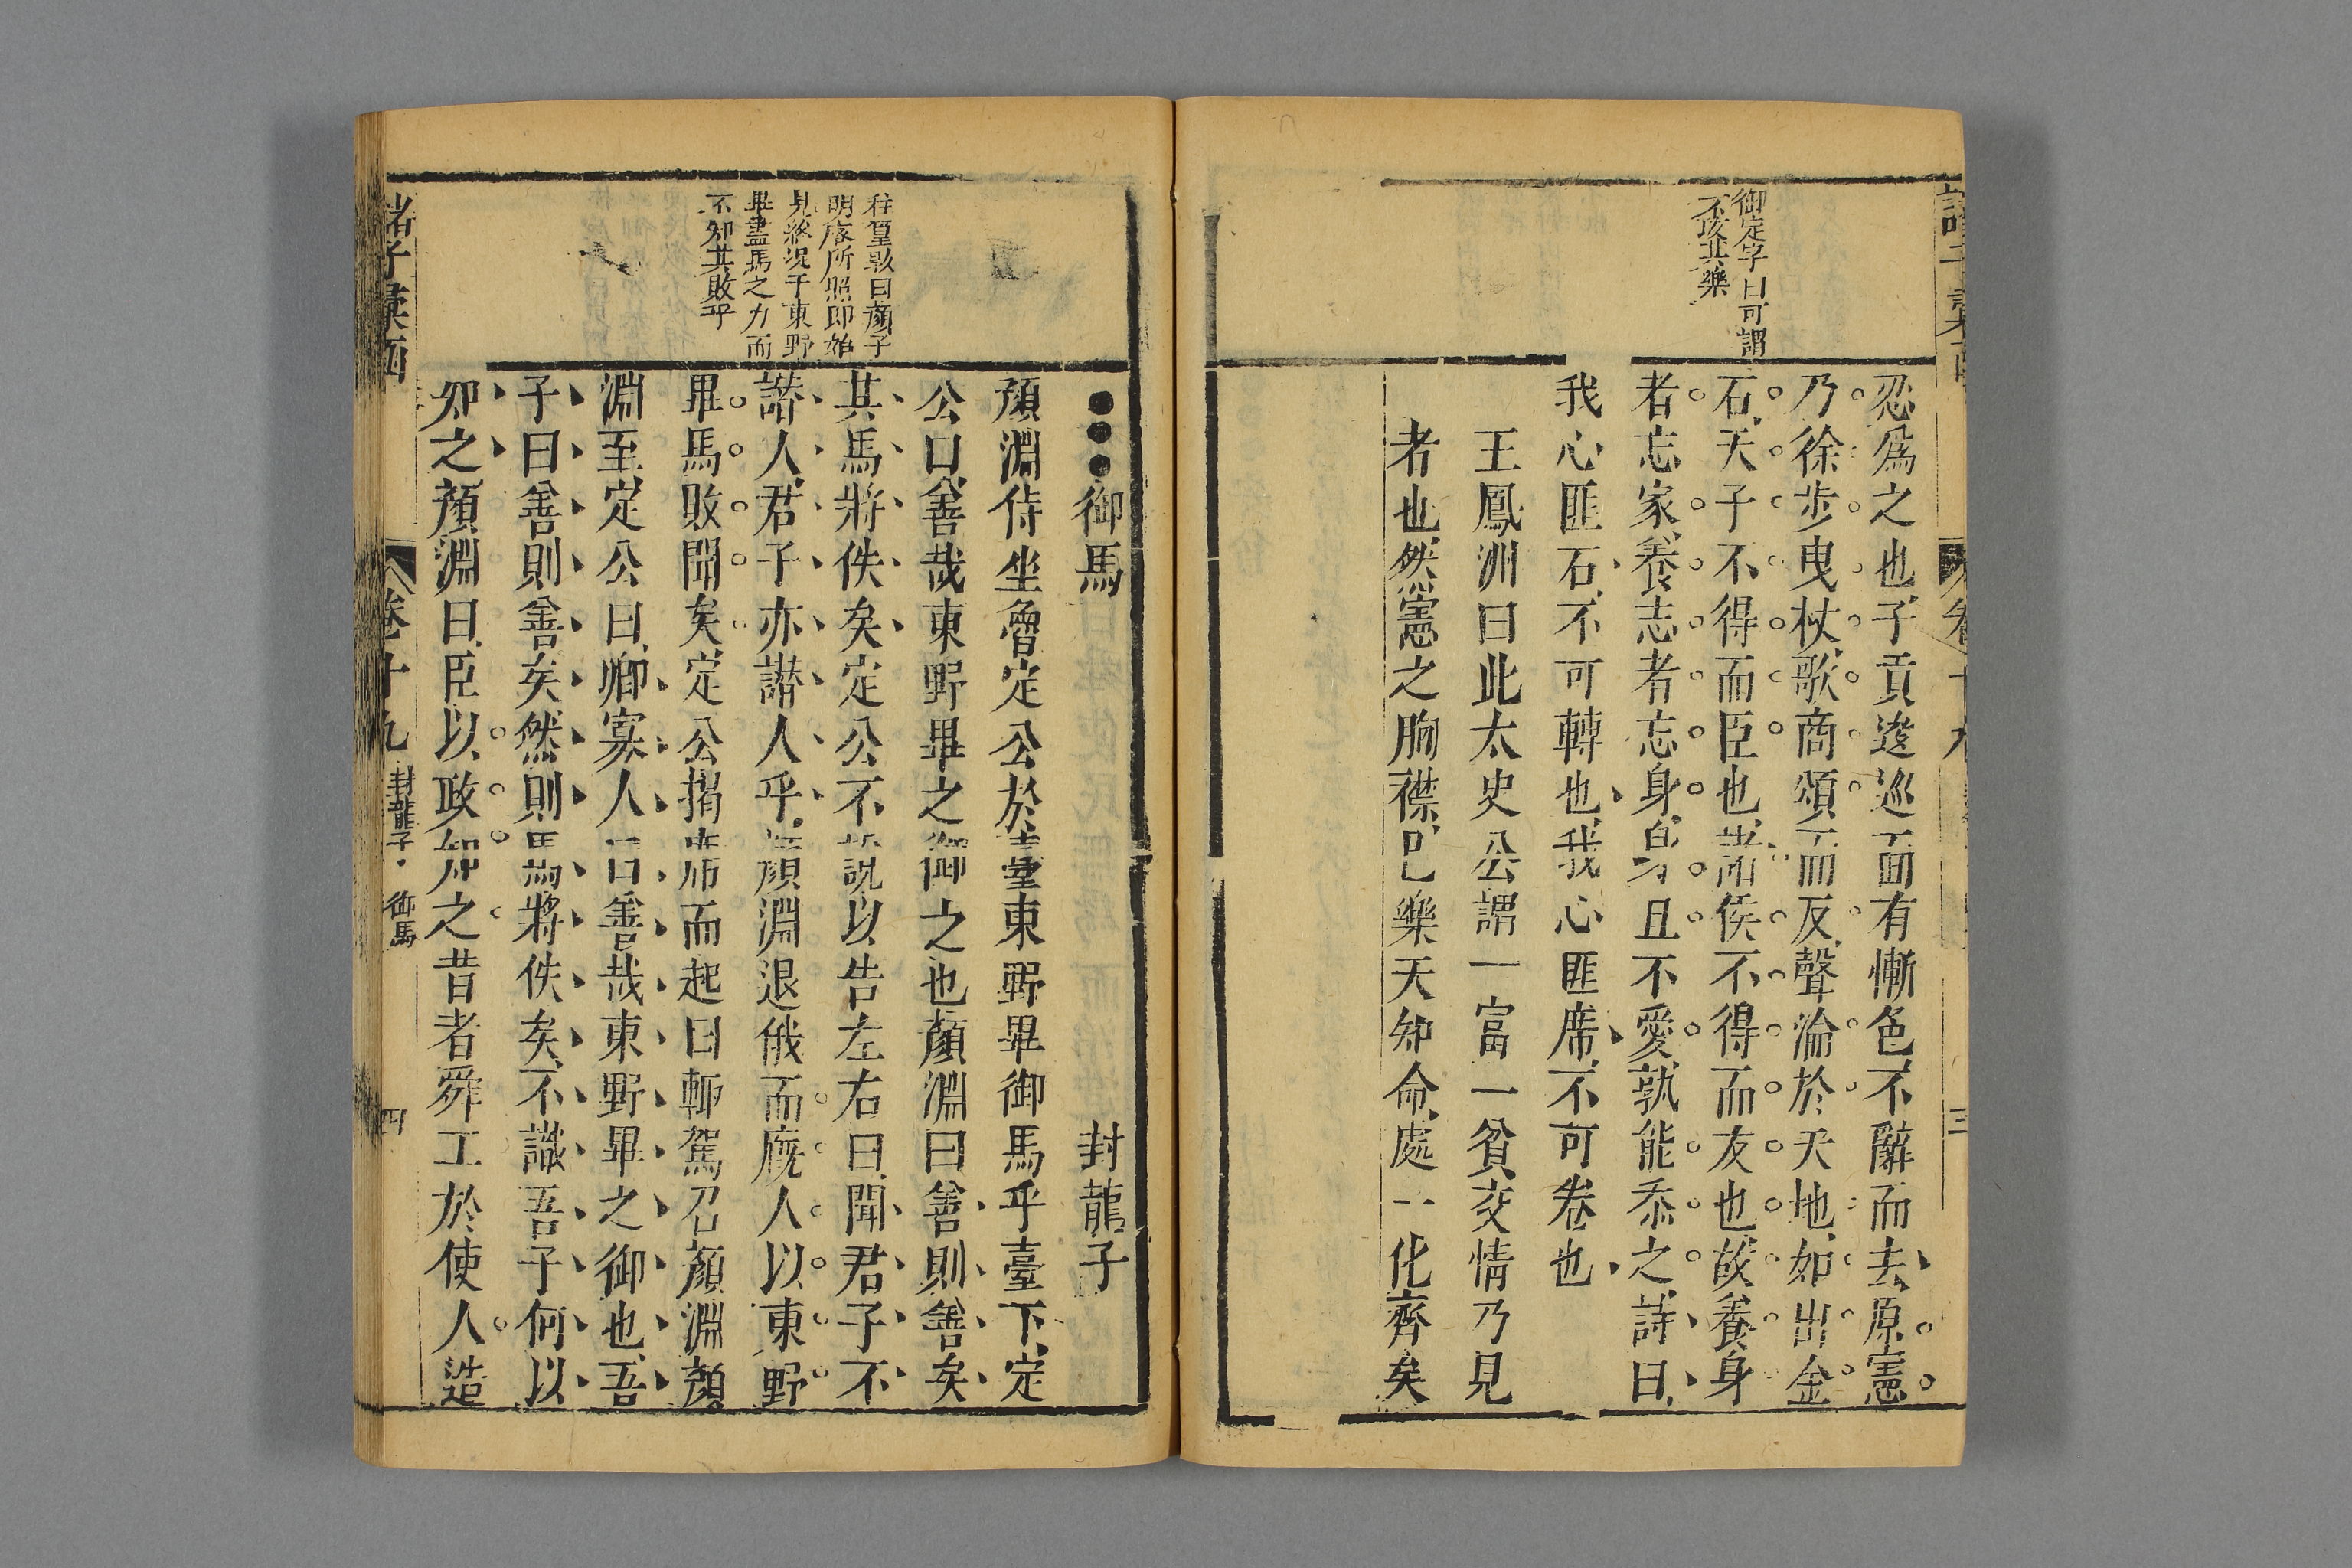 御定字曰可謂
不改其樂
忍爲之也子貢逡巡面有慚色不辭而去原憲
乃徐步曳杖歌商頌而反聲淪於天地如出金
石天子不得而臣也諸侯不得而友也故養身
者忘家養志者忘身身且不愛孰能忝之詩曰
我心匪石不可轉也我心匪席不可卷也
王鳳洲曰此太史公謂一富一貧交情乃見
者也然憲之胸襟已樂天知命處一化齊矣
卷十九
三
往篁墩曰顏子
明處所照即始
見終况于東野
畢盡馬之力而
不知其敗乎
●●●御馬 封龍子
顏淵侍坐魯定公於臺東野畢御馬乎臺下定
公曰善哉東野畢之御之也顏淵曰善則善矣
其馬將佚矣定公不說以告左右曰聞君子不
譖人君子亦譖人乎顏淵退俄而廐人以東野
畢馬敗聞矣定公揭席而起曰輒駕召顏淵顏
淵至定公曰鄉寡人曰善哉東野畢之御也吾
子曰善則善矣然則馬將佚矣不識吾子何以
知之顏淵曰臣以政知之昔者舜工於使人造
諸子彙函
卷十九
封龍子 御馬
四